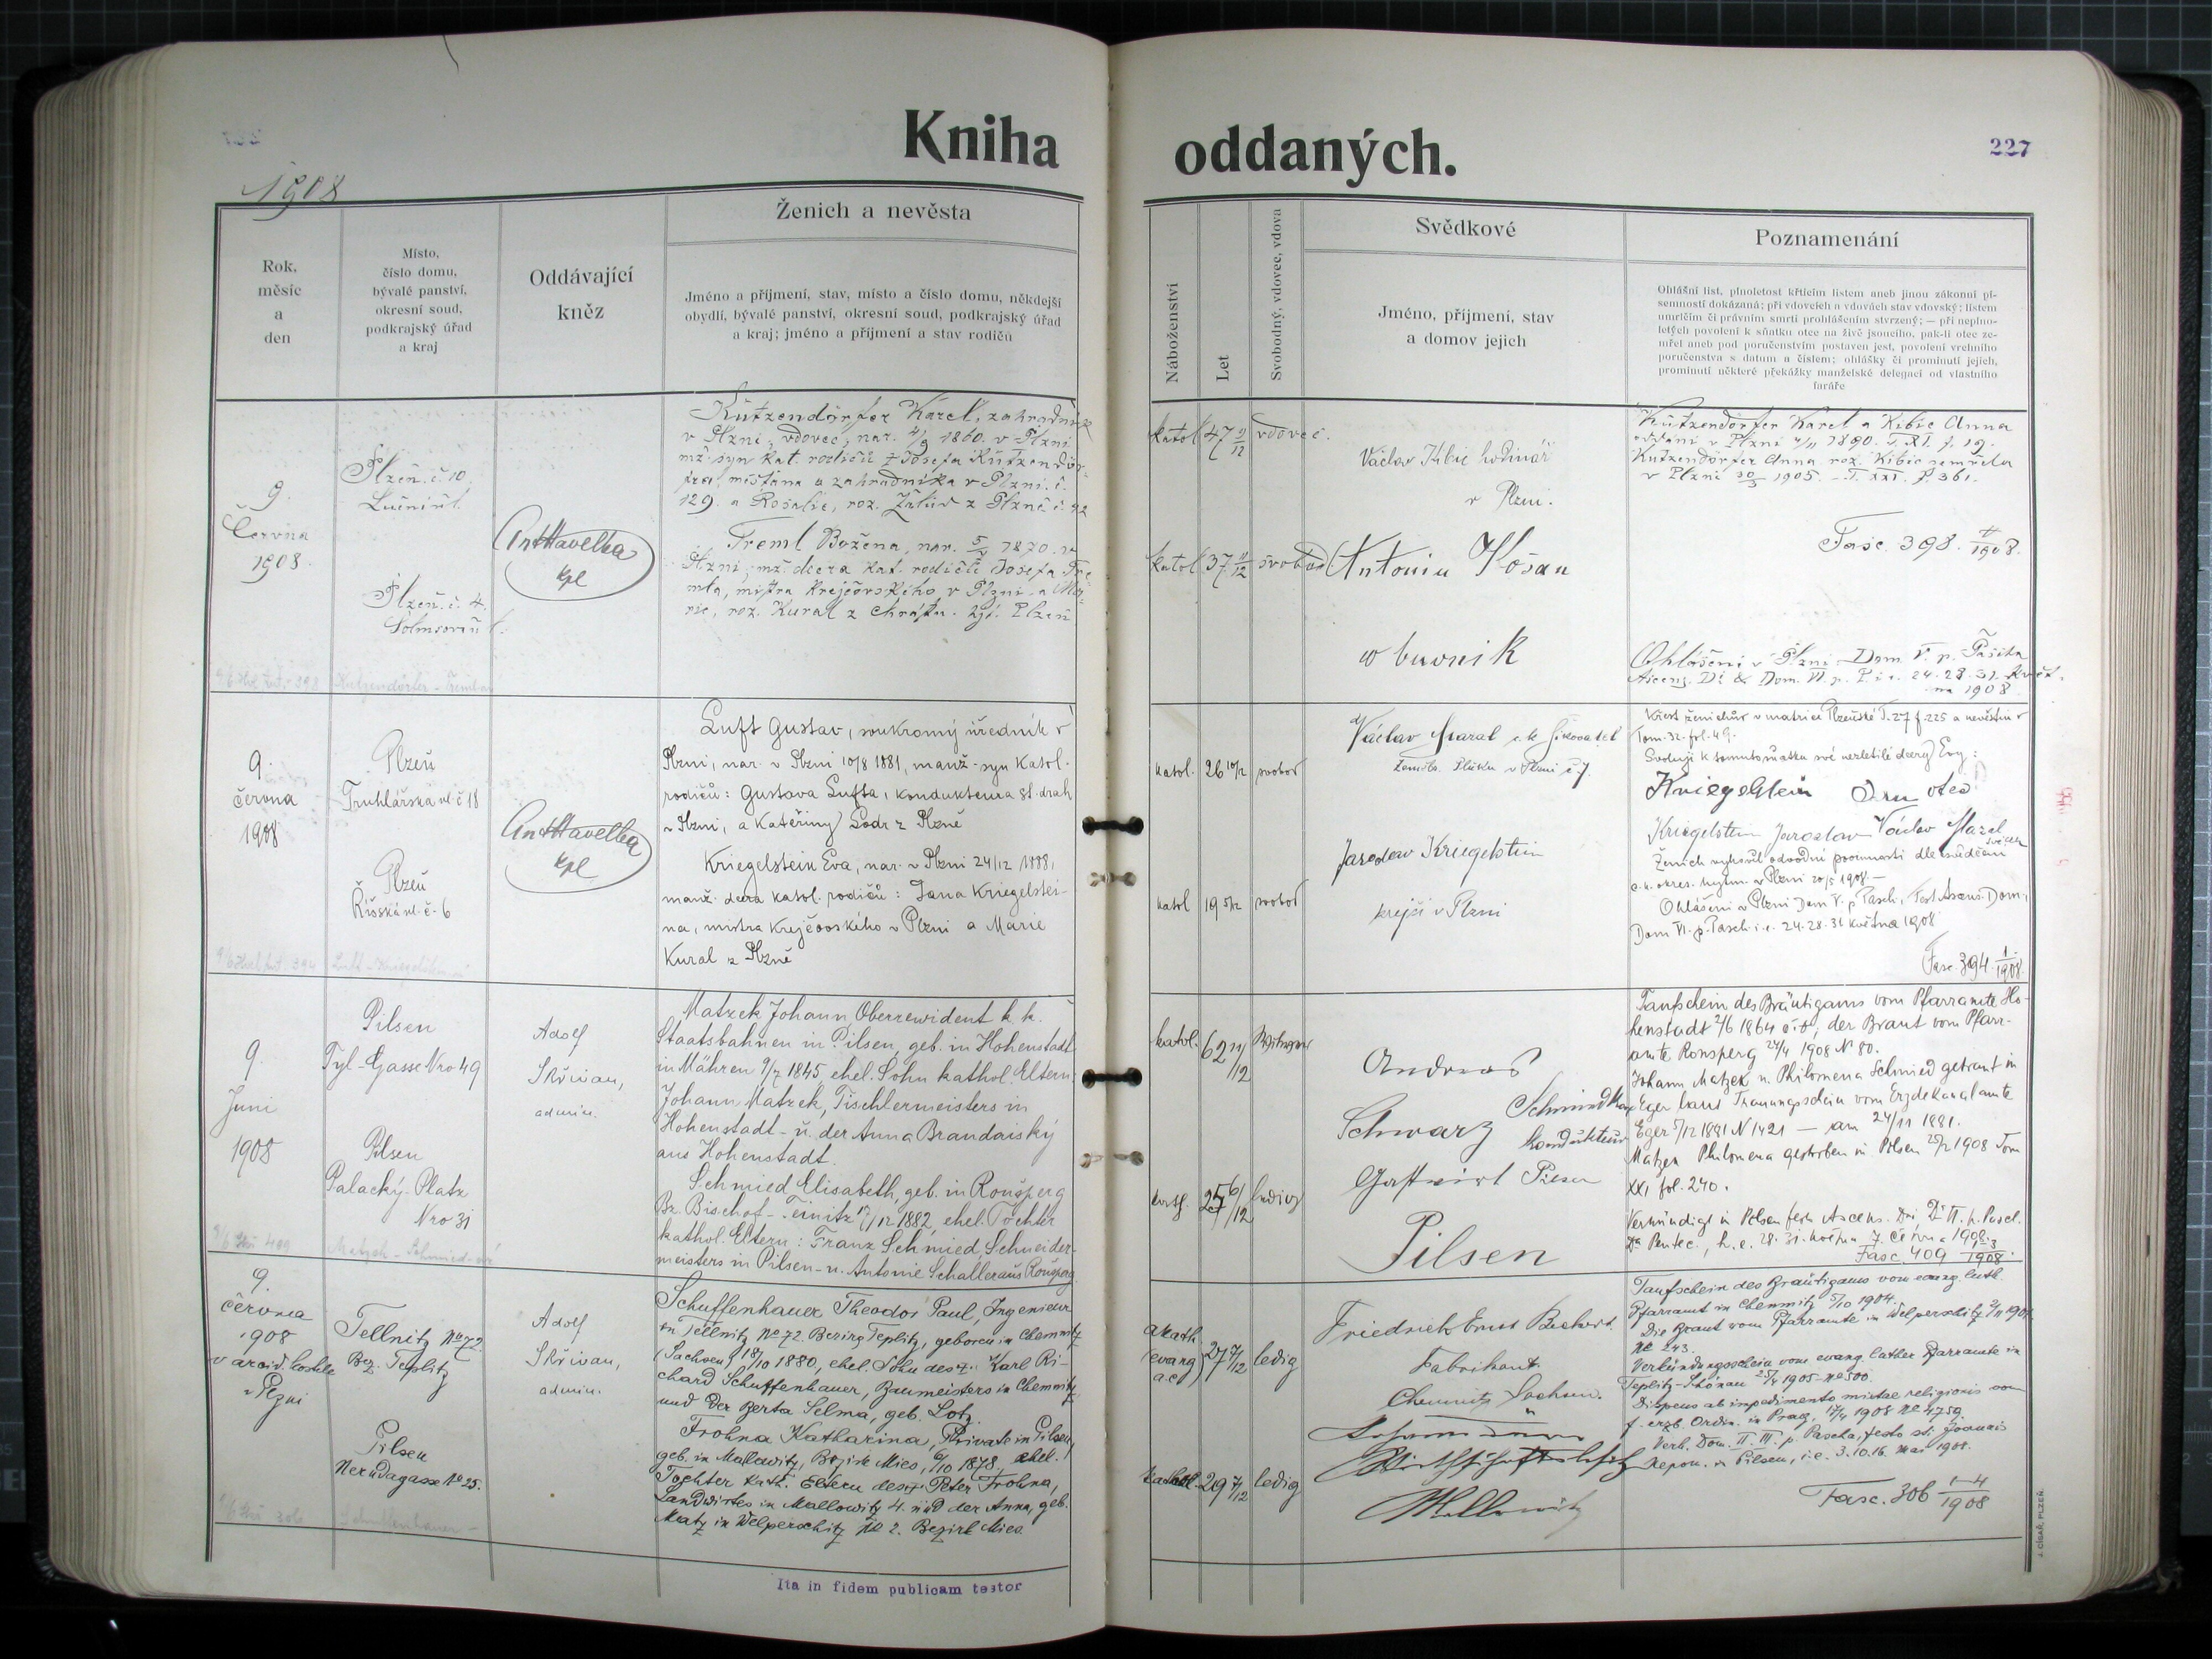 Kniha
oddaných.
227
1908
Rok,
měsíc
a
den
Místo,
číslo domu,
bývalé panství,
okresní soud,
podkrajský úřad
a kraj
Oddávající
kněz
Ženich a nevěsta
Jméno a příjmení, stav, místo a číslo domu, někdejší
obydlí, bývalé panství, okresní soud, podkrajský úřad
a kraj; jméno a příjmení a stav rodičů
Náboženství
Let
Svobodný, vdovec, vdova
Svědkové
Jméno, příjmení, stav
a domov jejich
Poznamenání
Ohlášní list, plnoletost křticím listem aneb jinou zákonní pí-
semností dokázaná; při vdovcích a vdovách stav vdovský; listem
umrlčím či právním smrti prohlášením stvrzený; — při neplno-
letých povolení k sňatku otce na živě jsoucího, pak-li otec ze-
mřel aneb pod poručenstvím postaven jest, povolení vrchního
poručenstva s datum a číslem; ohlášky či prominutí jejich,
prominutí některé překážky manželské delegací od vlastního
faráře
9.
Června
1908.
Plzeň. č. 10.
Luční ul.
Plzeň. č. 4.
Ant Havelka
kpl
Kützendörfer Karel, zahradník
v Plzni, vdovec, nar. 4/9 1860. v Plzni
mž. syn kat. rodičů † Josefa Kützendör-
fra, měšťana a zahradníka v Plzni. č.
129. a Rosalie, roz. z Plzně č. 42
Treml Božena, nar. 5/7 1870. v
Plzni, mž. dcera kat. rodičů Josefa Tre-
mla, mistra krejčovského v Plzni a Ma-
rie, roz. Kural z Chrástu. Plzeň
katol 47 9/12 vdovec.
katol 37 11/12 svobod
Václav Kibic hodinář
v Plzni.
Antonín Košan
obuvník
Kützendörfer Karel a Kibic Anna
oddáni v Plzni 4/11 1890. T. XI. f. 19.
Kützendörfer Anna roz. Kibic zemřela
v Plzni 30/3 1905. - T. XXI. f. 361.
Fasc. 398. 4/1908.
Ohlášeni v Plzni Dom. V. p. Pascha
Ascens. Di & Dom. VI. p. P. i. e. 24. 28. 31. květ-
na 1908
9.
června
1908
Plzeň
Truhlářská ul. č 18
Plzeň
Říšská ul. č. 6
Ant Havelka
kpl
Luft Gustav, soukromý úředník v
Plzni, nar. v Plzni 10/8 1881, manž. syn katol.
rodičů: Gustava Lufta, kondukteura st. drah
v Plzni, a Kateřiny Sodr z Plzně
Kriegelstein Eva, nar. v Plzni 24/12 1888,
manž. dcera katol. rodičů: Jana Kriegelstei-
na, mistra krejčovského v Plzni a Marie
Kural z Plzně
katol. 26 10/12 svobod
katol 19 5/12 svobod
Václav c. k.
v Plzni č. 7.
Jaroslav Kriegelstein
krejčí v Plzni
Křest ženichův v matrice Plzeňské T. 27 f. 225 a nevěstin v
Tom. 32. fol. 49.
Svoluji k tomuto sňatku své nezletilé dcery Evy:
Kriegelstein Jan otec
Kriegelstein Jaroslav Václav
svědek
Ženich vyhověl odvodní povinnosti dle svědčení
c. k. okres. hejtm. v Plzni 20/5 1908. —
Ohlášeni v Plzni Dom V. p. Pasch., Fest Ascens. Dom.,
Dom VI. p. Pasch. i. e. 24. 28. 31 května 1908
Fasc. 394. 1/1908.
9.
Juni
1908
Pilsen
Tyl-Gasse Nro 49
Pilsen
Palacký-Platz
Nro 31
Adolf
Skřivan,
admin.
Matzek Johann, Oberrewident k. k.
Staatsbahnen in Pilsen, geb. in Hohenstadt
in Mähren 9/7 1845 ehel. Sohn kathol. Eltern:
Johann Matzek, Tischlermeisters in
Hohenstadt - u. der Anna Brandaiský
aus Hohenstadt.
Schmied Elisabeth, geb. in Ronsperg
Bz. Bischof-Teinitz 17/12 1882, ehel. Tochter
kathol. Eltern: Franz Schmied, Schneider-
meisters in Pilsen - u. Antonie Schaller aus Ronsperg.
kathol. 62 11/12 Witwer
kath. 25 6/12 ledig
Andreas
Schwarz
Gastwirt
Pilsen
Schmied
Kondukteur
Pilsen
Taufschein des Bräutigams vom Pfarramte Ho-
henstadt 2/6 1864, der Braut vom Pfarr-
amte Ronsperg 24/4 1908 N 80.
Johann Matzek u. Philomena Schmied getraut in
Eger laut Trauungsschein vom Erzdekanalamte
Eger 5/12 1881 N 1421 — am 24/11 1881.
Matzek Philomena gestorben in Pilsen 25/2 1908 Tom
XXI fol. 240.
Verkündigt in Pilsen festo Ascens. Dni, D VI. p. Pasch.
Pentec., h. e. 28. 31. května 7. června 1908.
Fasc. 409 1-3/1908.
9.
června
1908
v arcid. kostele
v Plzni
Tellnitz No 72.
Bez. Teplitz
Pilsen
Nerudagasse No 25.
Adolf
Skřivan,
admin.
Schuffenhauer Theodor Paul, Ingenieur
in Tellnitz No 72. Bezirg Teplitz, geboren in Chemnitz
(Sachsen) 18/10 1880, ehel. Sohn des † Karl Ri-
chard Schuffenhauer, Baumeisters in Chemnitz
und der Berta Selma, geb. Lotz.
Frohna Katharina, Private in Pilsen,
geb. in Mallowitz, Bezirk Mies, 6/10 1878, ehel.
Tochter kath. Eltern des † Peter Frohna,
Landwirtes in Mallowitz 4. und der Anna, geb.
Matz in Welperschitz No 2. Bezirk Mies
akath.
(evang
a. c.) 27 7/12 ledig
kathol. 29 7/12 ledig
Friedrich Ernst Bechert.
Fabrikant
Chemnitz Sachsen.
Wirthschaftsbesitz
Mallowitz
Taufschein des Bräutigams vom evang. luth.
Pfarramt in Chemnitz 5/10 1904.
Die Braut vom Pfarramte in Welperschitz 2/11 1904
No 243.
Verkündungsschein vom evang. luther Pfarramte in
Teplitz-Schönau 25/4 1905 No 500.
Dispens ab impedimento mixtae religionis vom
f. erzb. Ordin. in Prag, 17/4 1908 No 4759.
Verk. Dom. II. III. p. Pascha, festo sti Joannis
Nepom. in Pilsen, i. e. 3. 10. 16. Mai 1908.
Fasc. 306 1-4/1908
Ita in fidem publicam testor
J. CÍSAŘ, PLZEŇ.